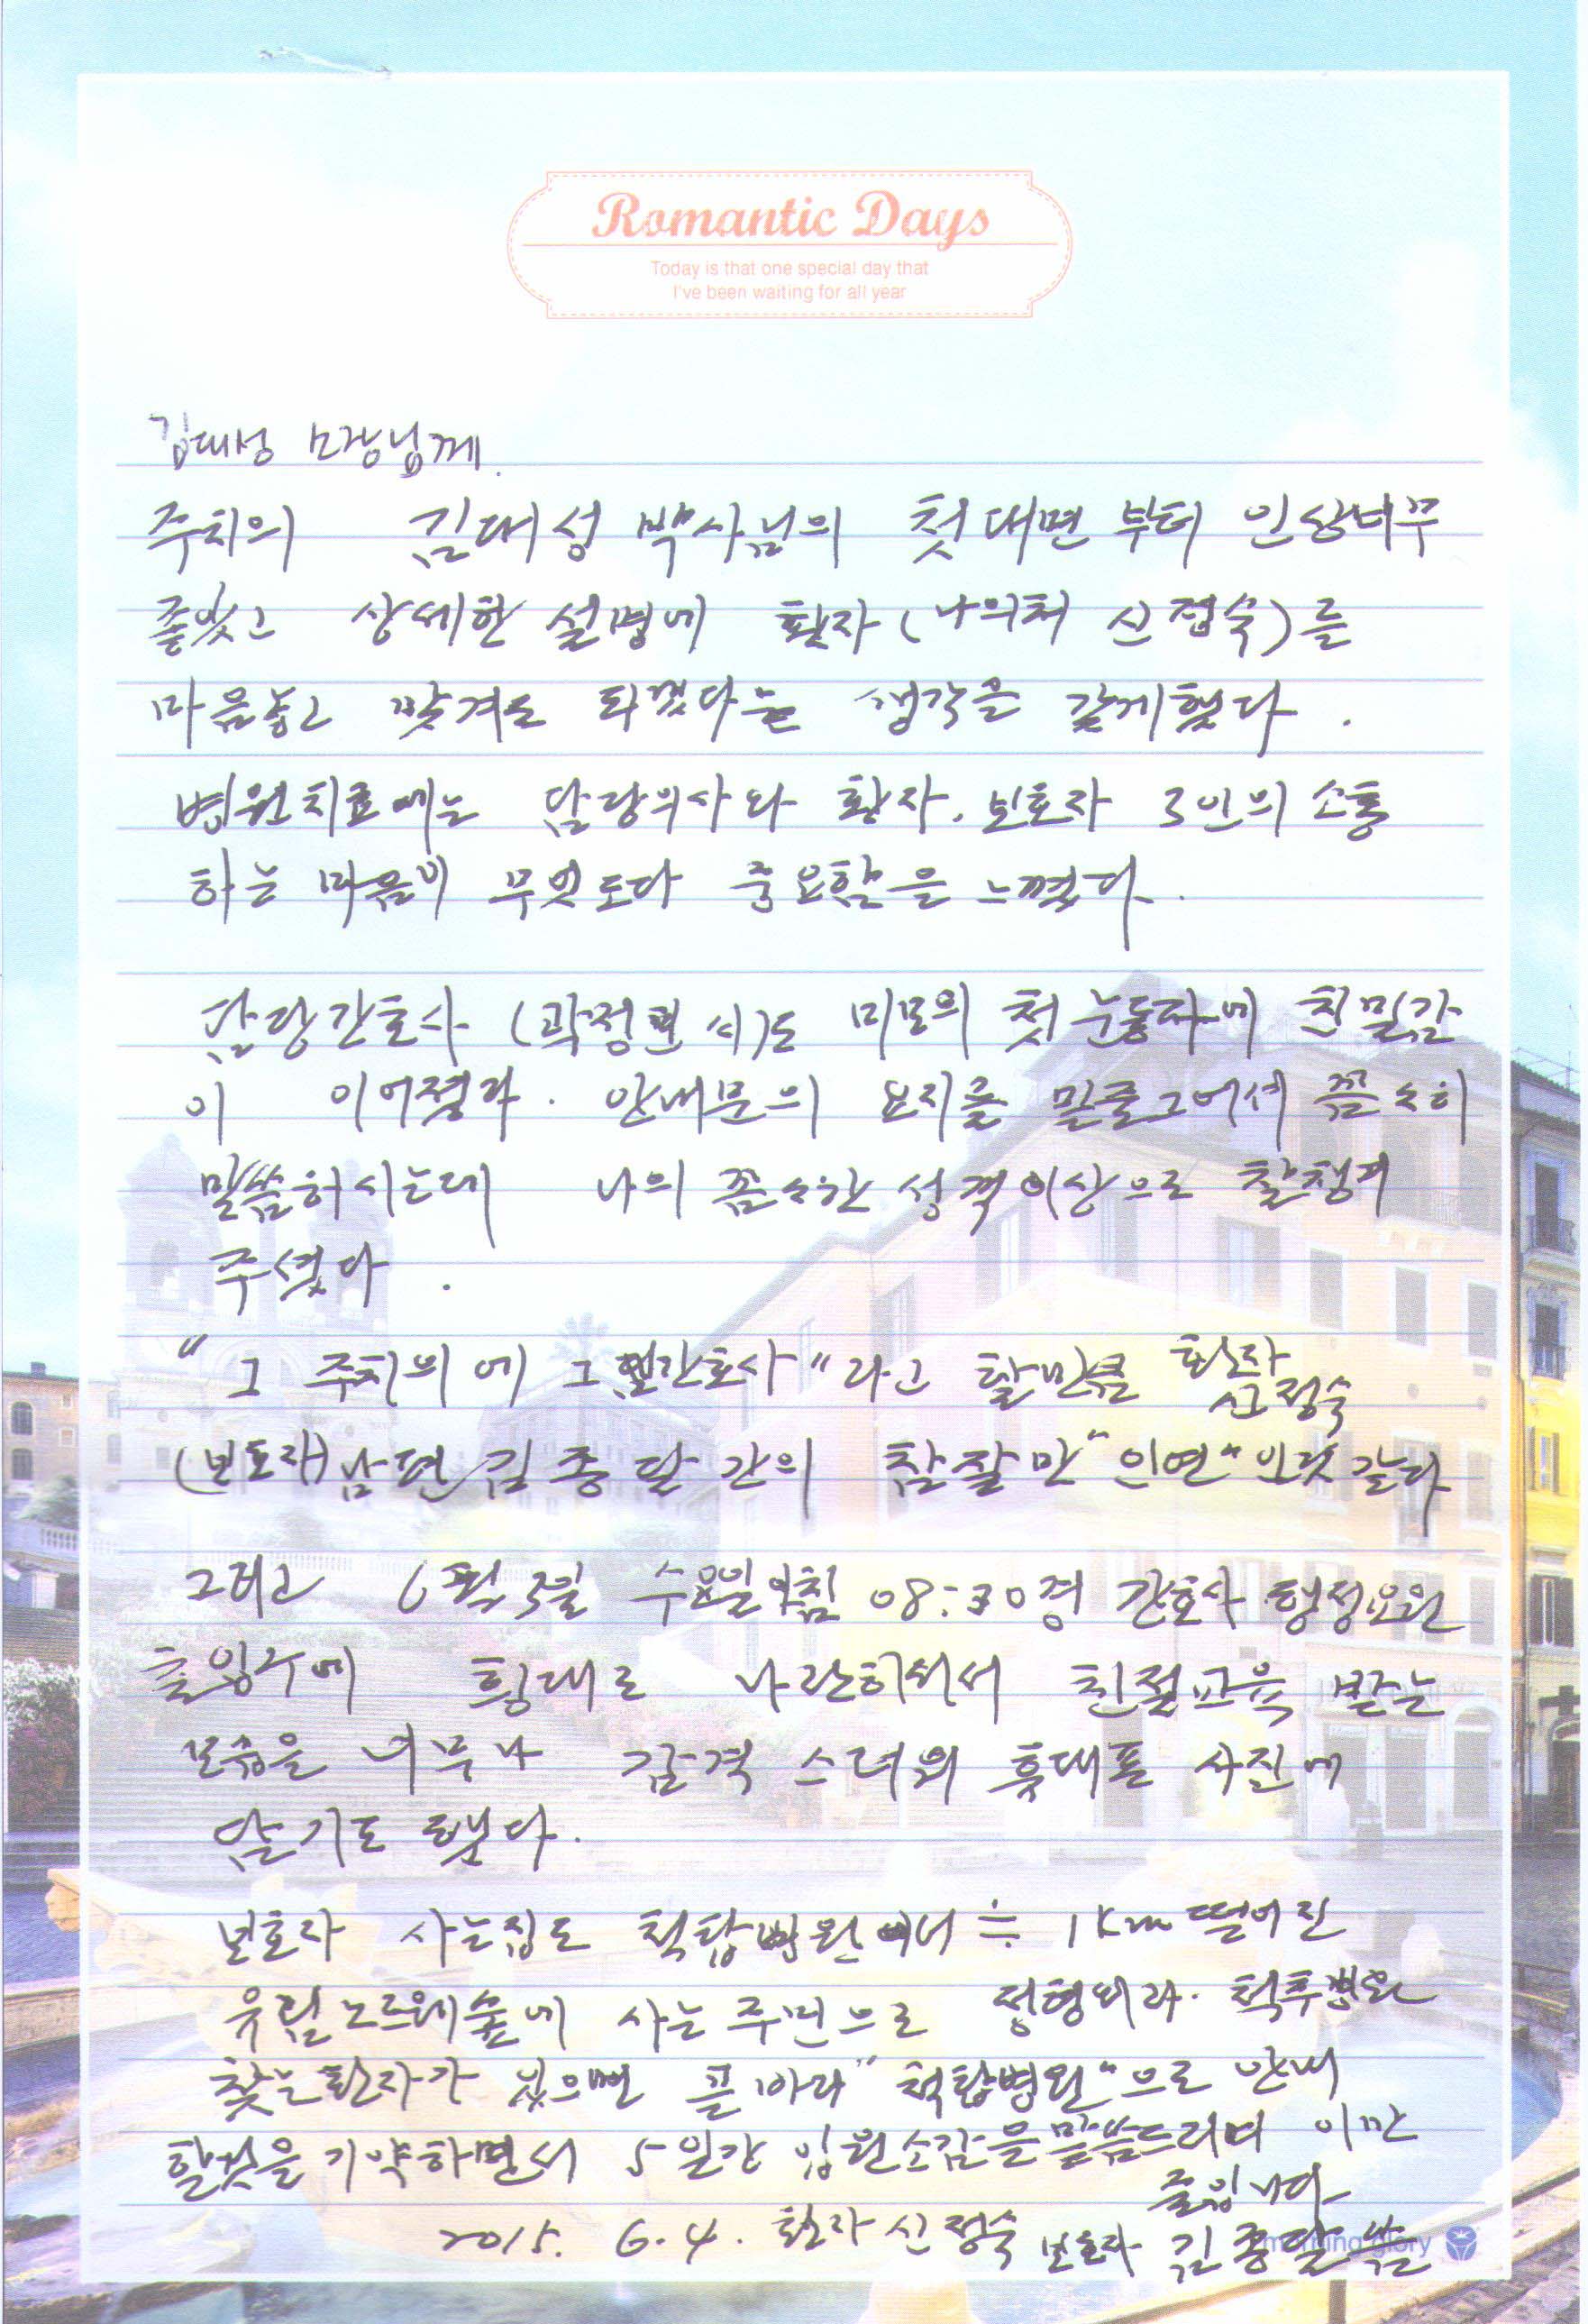 Romantic Days
Today is that one special day that
I've been waiting for all year
김대성 원장님께.
주치의 김대성 박사님의 첫대면 부터 인상너무
좋았고 상세한 설명에 환자(나의처 신정숙)를
마음놓고 맞겨도 되겠다는 생각을 갖게했다.
병원치료에는 담당의사와 환자. 보호자 3인의 소통
하는 마음이 무엇보다 중요함을 느꼈다.
담당간호사 (곽정현 씨)도 미모의 첫 눈동자에 친밀감
이 이어졌다. 안내문의 요지를 밑줄그어서 꼼꼼히
말씀하시는데 나의 꼼꼼한 성격이상으로 잘챙겨
주셨다.
"그 주치의에 그 간호사"라고 할만큼 환자
신정숙
(보호자)남편 김종달 간의 참잘만 "인연"인것 같다
그리고 6월 3일 수요일아침 08:30경 간호사 행정요원
출입구에 횡대로 나란히서서 친절교육 받는
모습을 너무나 감격 스러워 휴대폰 사진에
담기도 했다.
보호자 사는집도 척탑병원에서 ≒ 1Km 떨어진
유림노르웨이숲에 사는 주민으로 정형외과. 척추병원
찾는환자가 있으면 "척탑병원"으로 안내
할것을 기약하면서 5일간 입원소감을 말씀드리며 이만
줄입니다
2015. 6. 4. 환자 신정숙 보호자 김종달
morning glory